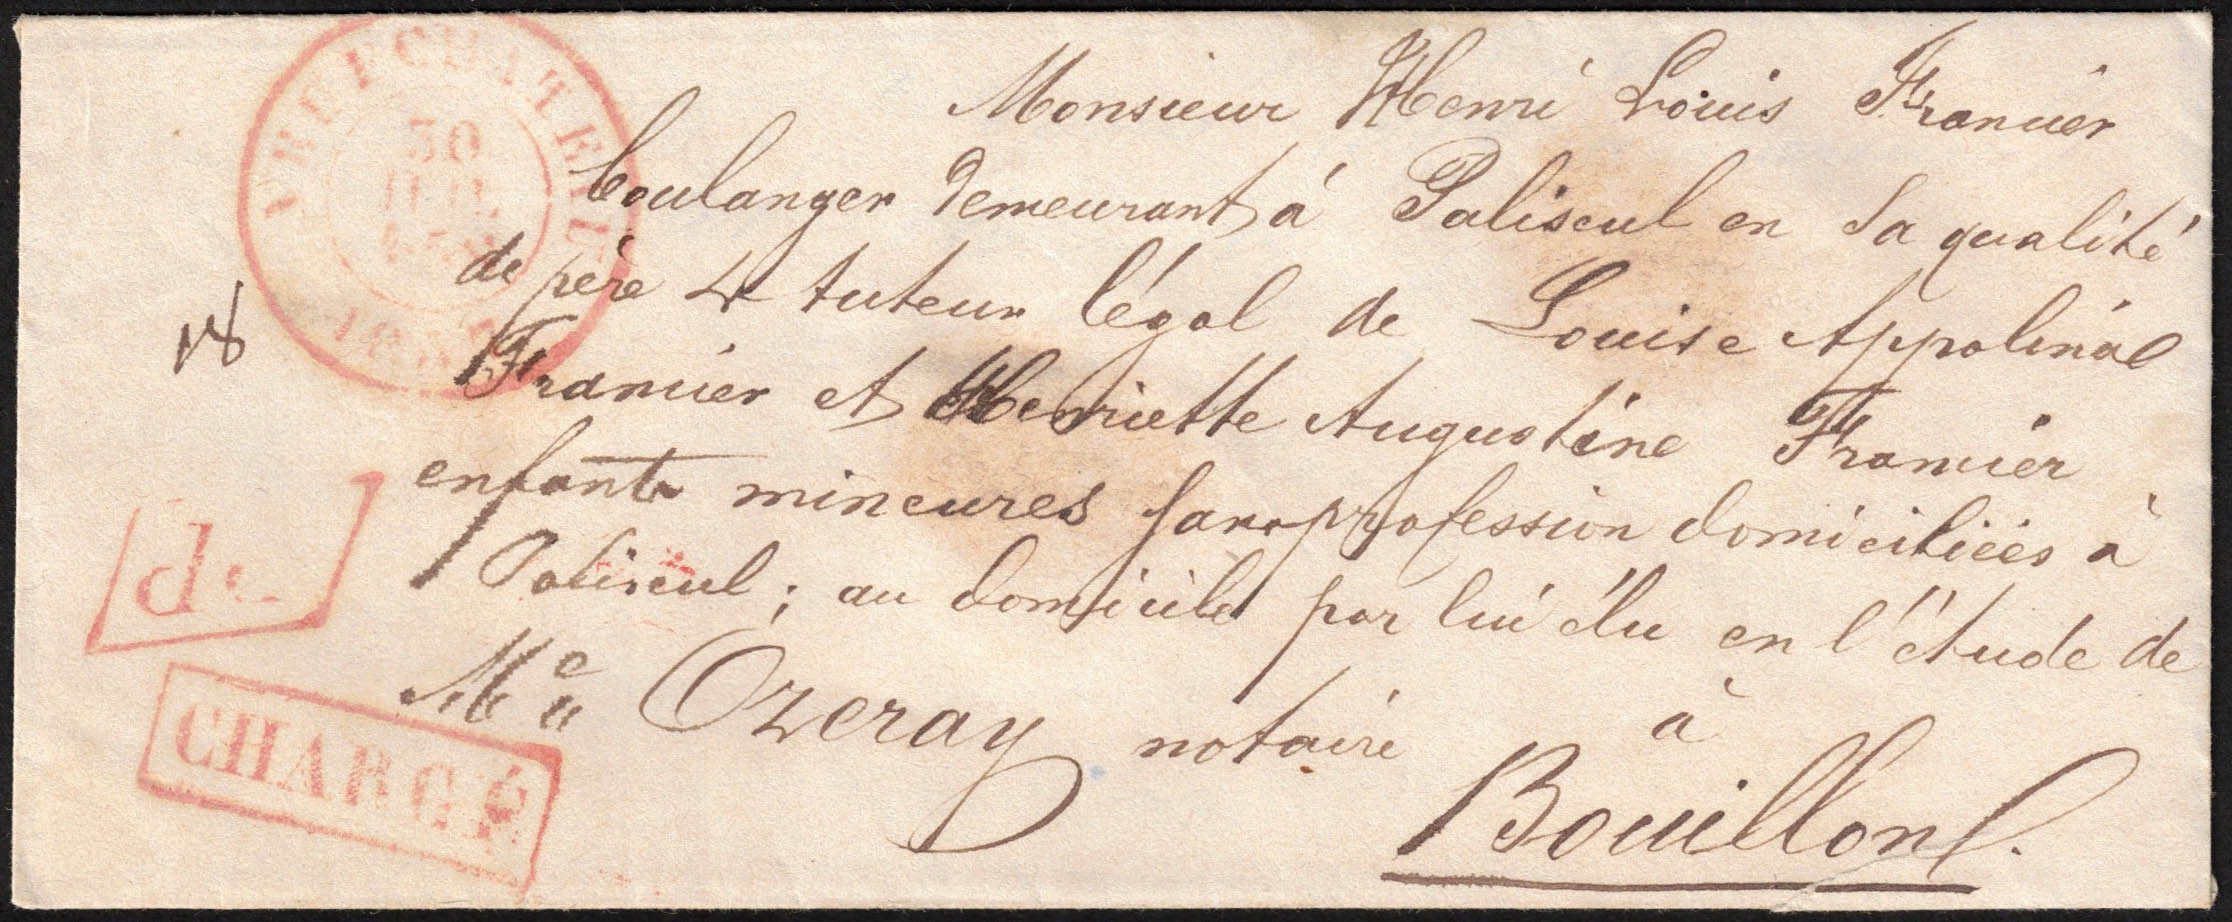 NEUFCHATEAU
30
JUIL.
Monsieur Henri Louis Framier
boulanger demeurant à Paliseul en sa qualité
de père & tuteur légal de Louise Appolinal
Framier et Henriette Augustine Framier
enfants mineures sans profession domiciliées à
Paliseul ; au domicile par lui élu en l'étude de
Me Ozeray notaire à
Bouillon.
18
CHARGÉ